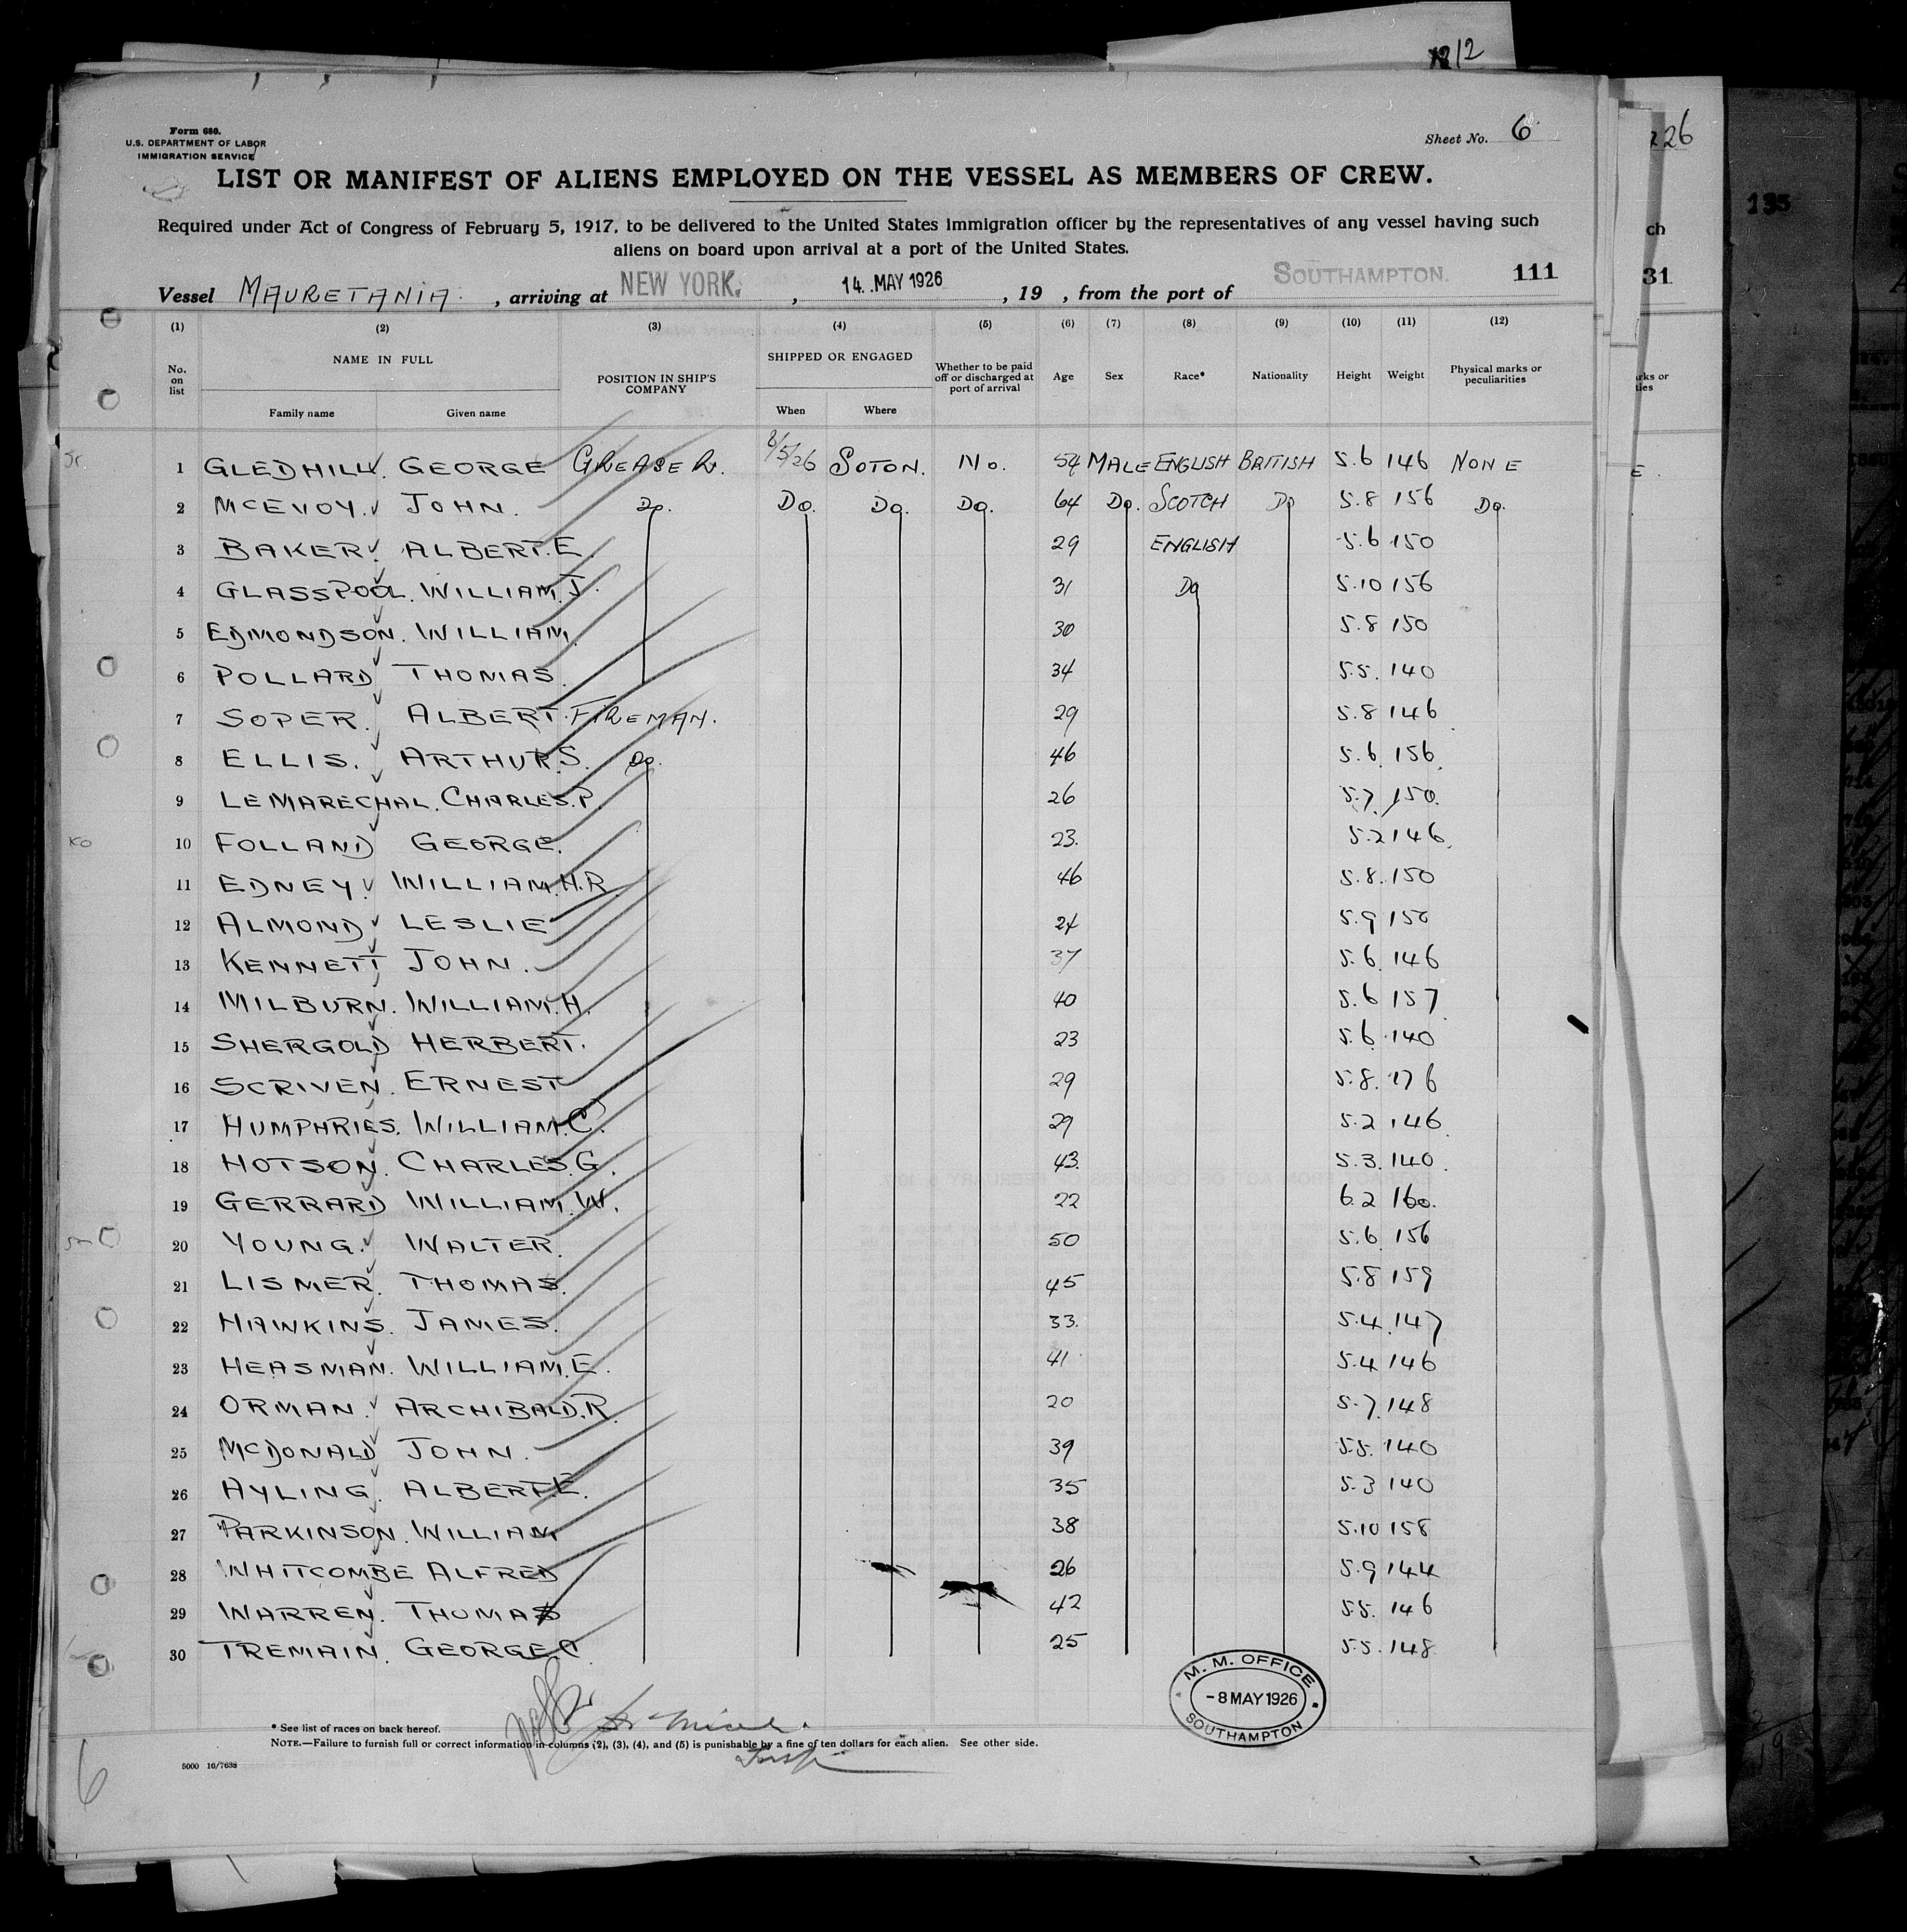 1212
Form 680.
U.S. DEPARTMENT OF LABOR
IMMIGRATION SERVICE
Sheet No. 6
226
LIST OR MANIFEST OF ALIENS EMPLOYED ON THE VESSEL AS MEMBERS OF CREW.
135
Required under Act of Congress of February 5, 1917, to be delivered to the United States immigration officer by the representatives of any vessel having such
aliens on board upon arrival at a port of the United States.
ch
Vessel MAURETANIA. , arriving at NEW YORK. , 14. MAY 1926 , 19 , from the port of SOUTHAMPTON. 111
31
(1) (2) (3) (4) (5) (6) (7) (8) (9) (10) (11) (12)
No. on list NAME IN FULL POSITION IN SHIP'S COMPANY SHIPPED OR ENGAGED Whether to be paid off or discharged at port of arrival Age Sex Race* Nationality Height Weight Physical marks or peculiarities
Family name Given name When Where
1 GLEDHILL. GEORGE GREASER. 8/5/26 SOTON. No. 54 MALE ENGLISH BRITISH 5.6 146 NONE
2 MCEVOY. JOHN. Do. Do. Do. Do. 64 Do. SCOTCH Do 5.8 156 Do.
3 BAKER. ALBERT.E. 29 ENGLISH 5.6 150
4 GLASSPOOL. WILLIAM.J. 31 Do 5.10 156
5 EDMONDSON. WILLIAM. 30 5.8 150
6 POLLARD THOMAS. 34 5.5. 140
7 SOPER. ALBERT. FIREMAN. 29 5.8 146
8 ELLIS. ARTHUR.S. Do. 46 5.6. 156.
9 LEMARECHAL. CHARLES.P. 26 5.7. 150.
10 FOLLAND GEORGE. 23. 5.2 146.
11 EDNEY. WILLIAM.H.R 46 5.8. 150
12 ALMOND LESLIE 24 5.9 150
13 KENNETT JOHN. 37 5.6. 146
14 MILBURN. WILLIAM.H. 40 5.6 157
15 SHERGOLD HERBERT. 23 5.6. 140
16 SCRIVEN. ERNEST 29 5.8. 176
17 HUMPHRIES. WILLIAM.C. 29 5.2 146.
18 HOTSON. CHARLES.G. 43. 5.3. 140.
19 GERRARD WILLIAM.W. 22 6.2 160.
20 YOUNG. WALTER. 50 5.6. 156
21 LISMER. THOMAS. 45 5.8 159
22 HAWKINS. JAMES. 33. 5.4. 147
23 HEASMAN. WILLIAM.E. 41 5.4 146
24 ORMAN. ARCHIBALD.R. 20 5.7. 148
25 MCDONALD JOHN. 39 5.5. 140
26 AYLING. ALBERT.E. 35 5.3 140
27 PARKINSON. WILLIAM 38 5.10 158
28 WHITCOMBE ALFRED 26 5.9 144
29 WARREN. THOMAS 42 5.5. 146
30 TREMAIN. GEORGE.C. 25 5.5. 148.
M. M. OFFICE
-8 MAY 1926
SOUTHAMPTON
* See list of races on back hereof.
NOTE.—Failure to furnish full or correct information in columns (2), (3), (4), and (5) is punishable by a fine of ten dollars for each alien. See other side.
5000 10/7638
6